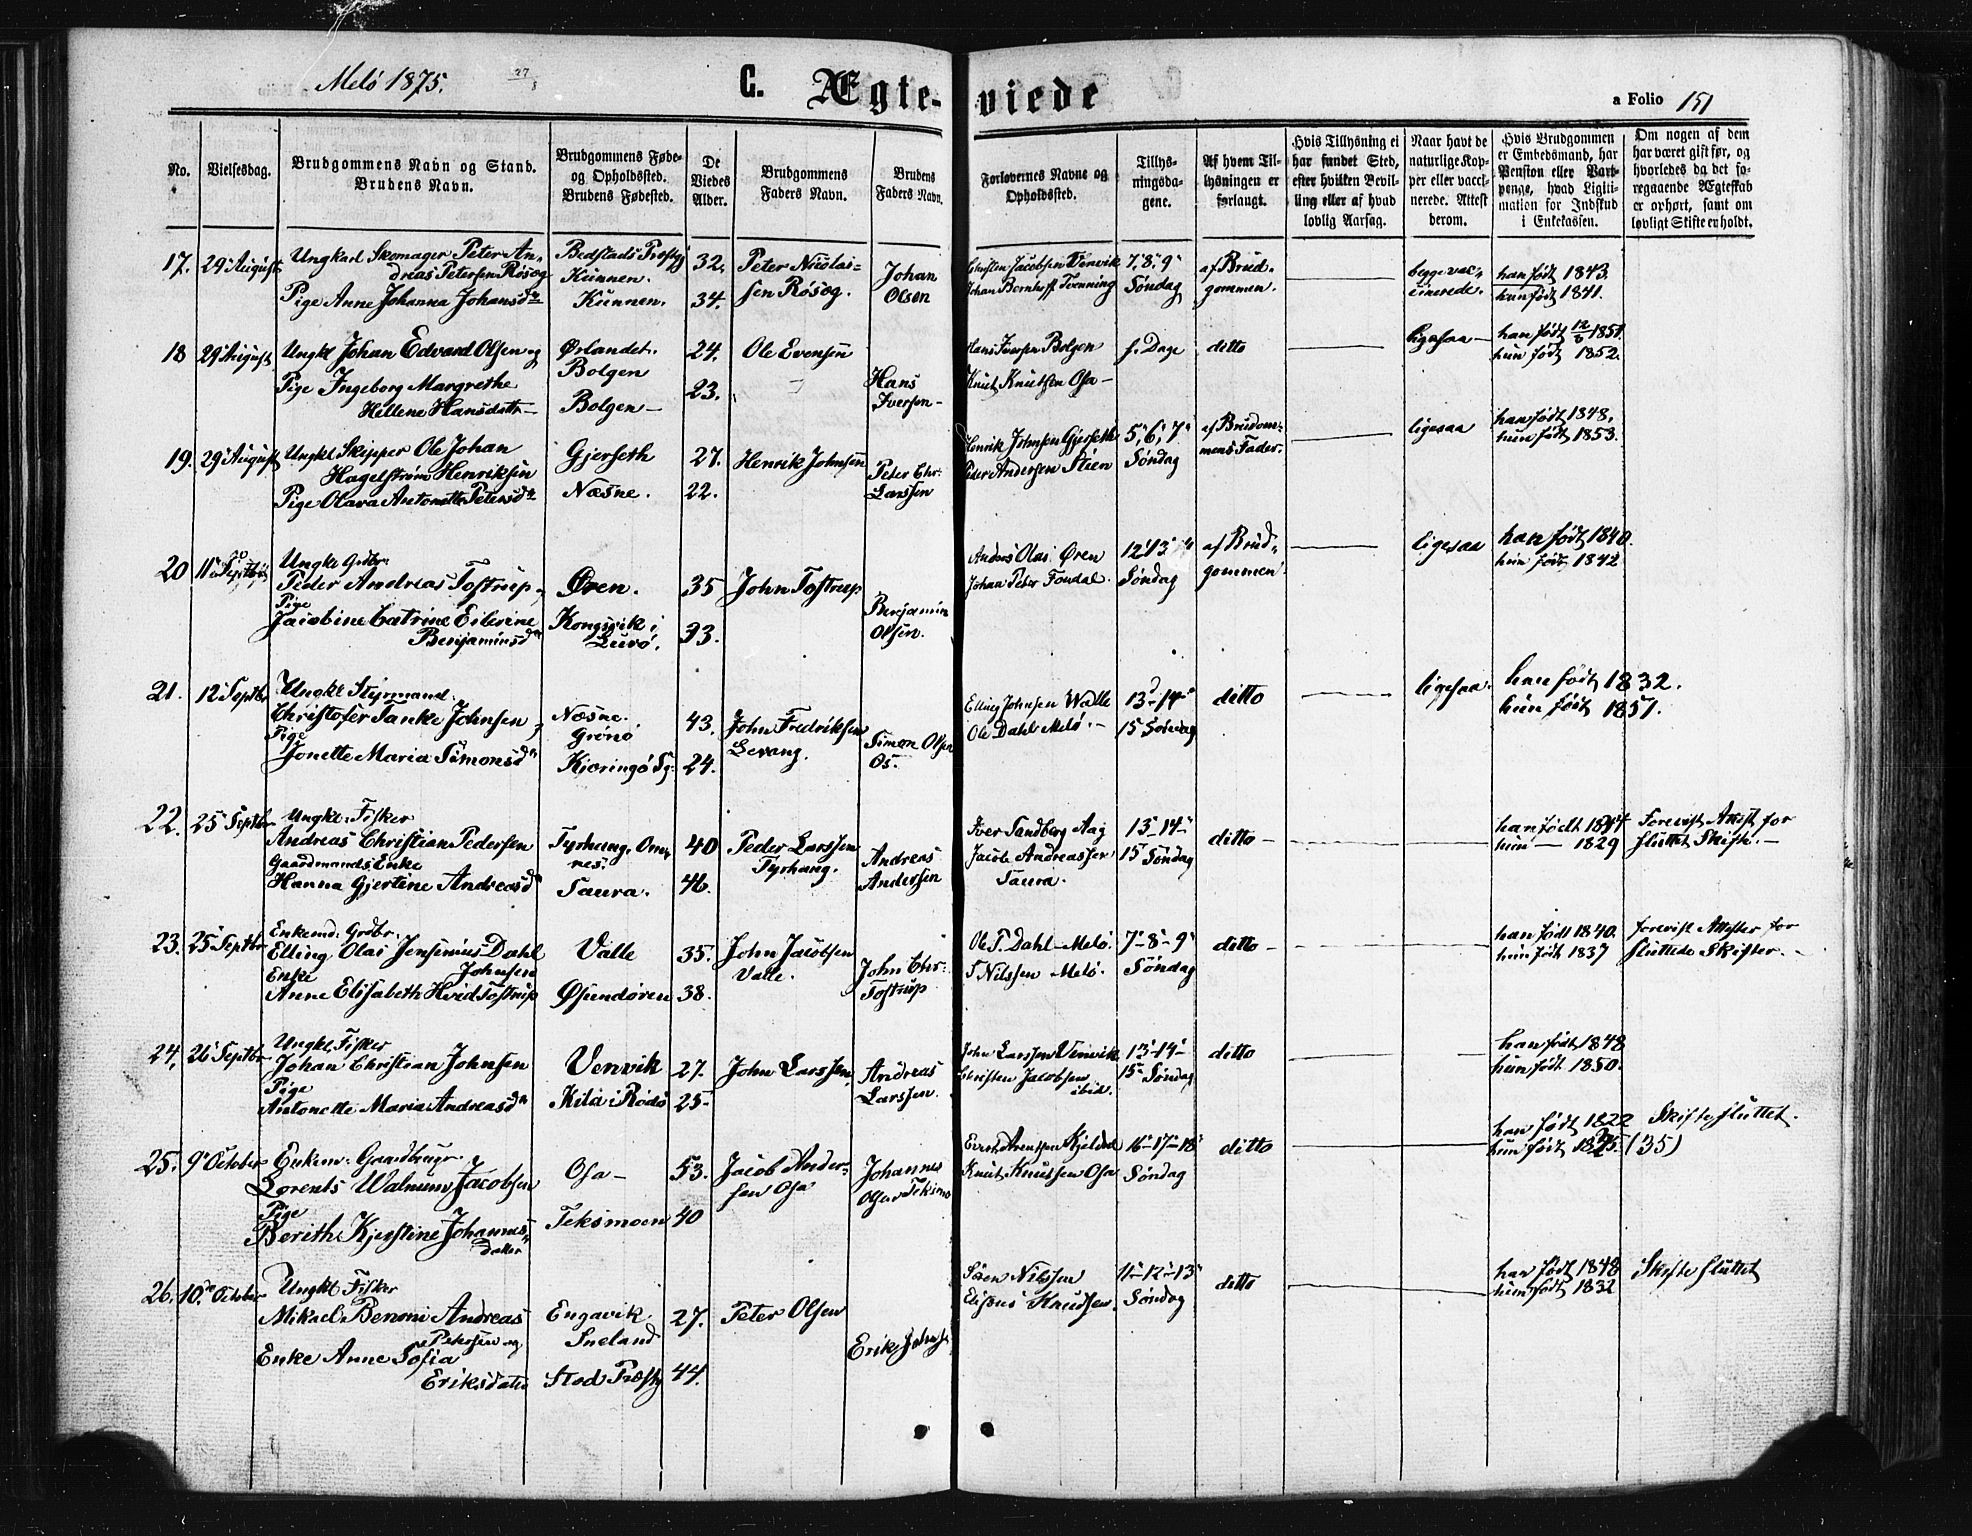 Melö 1875.
C. Ægte-viede
a Folio 151
No.
Vielsesdag.
Brudgommens Navn og Stand.
Brudens Navn.
Brudgommens Føde-
og Opholdssted.
Brudens Fødested.
De
Viedes
Alder.
Brudgommens
Faders Navn.
Brudens
Faders Navn.
Forlovernes Navne og
Opholdssted.
Tillys-
ningsda-
gene.
Af hvem Til-
lysningen er
forlangt.
Hvis Tillysning ei
har fundet Sted,
efter hvilken Bevil-
ling eller af hvad
lovlig Aarsag.
Naar havt de
naturlige Kop-
per eller vacci-
nerede. Attest
derom.
Hvis Brudgommen
er Embedsmand, har
Pension eller Vart-
penge, hvad Ligiti-
mation for Indskud
i Enkekassen.
Om nogen af dem
har været gift før, og
hvorledes da det fo-
regaaende Ægteskab
er ophørt, samt om
lovligt Skifte er holdt.
17. 29 August
Ungkarl Skomager Peter An-
dreas Petersen Røsøg
Pige Anne Johanna Johansdr
Bedstads Præstgj
Kunnen.
Kunnen.
32.
34.
Peter Nicolai-
sen Røsøg.
Johan
Olsen
Christen Jacobsen Venvik
Johan Bernhoff Tvenning
7, 8, 9
Søndag
af Brud-
gommen.
begge vac-
cinerede.
han født 1843.
hun født 1841.
18 29 August
Ungkl Johan Edvard Olsen og
Pige Ingeborg Margrethe
Hellene Hansdatr
Ørlandet.
Bolgen
Bolgen
24.
23.
Ole Evensen
Hans
Iversen
Hans Iversen Bolgen
Knut Knutsen Osa
s. Dage
ditto
ligesaa
han født 12/6 1851.
hun født 1852.
19. 29 August
Ungkl Skipper Ole Johan
Hagelstrøm Henriksen
Pige Olava Antonette Petersdr
Gjerseth
Næsne.
27.
22.
Henrik Johnsen
Peter Chr:
Larssen
Henrik Johnsen Gjerseth
Peder Andersen Stien
5, 6, 7
Søndag
af Brudom-
mens Fader.
ligesaa
han født 1848.
hun født 1853.
20 11 Septbr
Ungkl Grdbr.
Peder Andreas Tostrup
Pige
Jacobine Catrine Eilerine
Benjaminsdr
Øren.
Kongsvik i
Lurö.
35
33.
John Tostrup
Benjamin
Olsen.
Anders Olai Øren
Johan Peter Fondal.
12 13 14
Søndag
af Brud-
gommen
ligesaa
han født 1840.
hun født 1842
21. 12 Septbr
Ungkl Styrmand
Christofer Tanke Johnsen
Pige
Jonette Maria Simonsdr
Næsne.
Grönö
Kjæringö Sg:
43.
24.
John Fredriksen
Levang.
Simon Olsen
Os.
Elling Johnsen Walle
Ole Dahl Melö.
13-14
15 Søndag
ditto
ligesaa.
han født 1832.
hun født 1851.
22. 25 Septbr
Ungkl. Fisker
Andreas Christian Pedersen
Gaardmands Enke
Hanna Gjertine Andreasdr
Tyrhaug,
nes.
Saura.
40
46.
Peder Larssen
Tyrhaug.
Andreas
Andersen
Iver Sandberg Aag
Jacob Andreassen
Saura.
13-14
15 Søndag
ditto
han født 1844
hun 1829
Forevist Attest for
sluttet Skifte.
23. 25 Septbr
Enkemd: Grdbr.
Elling Olai Jensenius Dahl
Johnsen
Enke
Anne Elisabeth Hvid Tostrup
Valle
Øsundøren
35.
38.
John Jacobsen
Valle.
John Chr:
Tostrup
Ole T. Dahl Melö.
T Nilssen Melö.
7-8-9
Søndag
ditto
han født 1840.
hun født 1837
forevist Attester for
sluttede Skifter.
24, 26 Septbr
Ungkl Fisker
Johan Christian Johnsen
Pige
Antonette Maria Andreasdr
Venvik
Kila i Rödö
27.
25
John Larssen
Andreas
Larssen.
John Larssen Venvik
Christen Jacobsen
ibid.
13-14
15 Søndag
ditto
han født 1848
hun født 1850.
25. 9 October
Enkem: Gaardbruger
Lorents Walnum Jacobsen
Pige
Berith Kjerstine Johannes-
datter
Osa
Teksmoen
53.
40
Jacob Ander-
sen Osa
Johannes
Olsen Teksmo
Evert Arentsen Kjeldal
Knut Knutsen Osa
16-17-18
Søndag
ditto
han født 1822
hun født 1835. (35)
Skifte sluttet.
26. 10 October
Ungkl Fisker
Mikael Benoni Andreas
Petersen og
Enke Anne Sofia
Eriksdatter
Engavik
Sneland
Stod Præstg
27.
44.
Peter Olsen
Erik
Sören Nilssen
Elisæus Knudsen.
11-12-13
Søndag
ditto
han født 1848
hun født 1832
Skifte sluttet